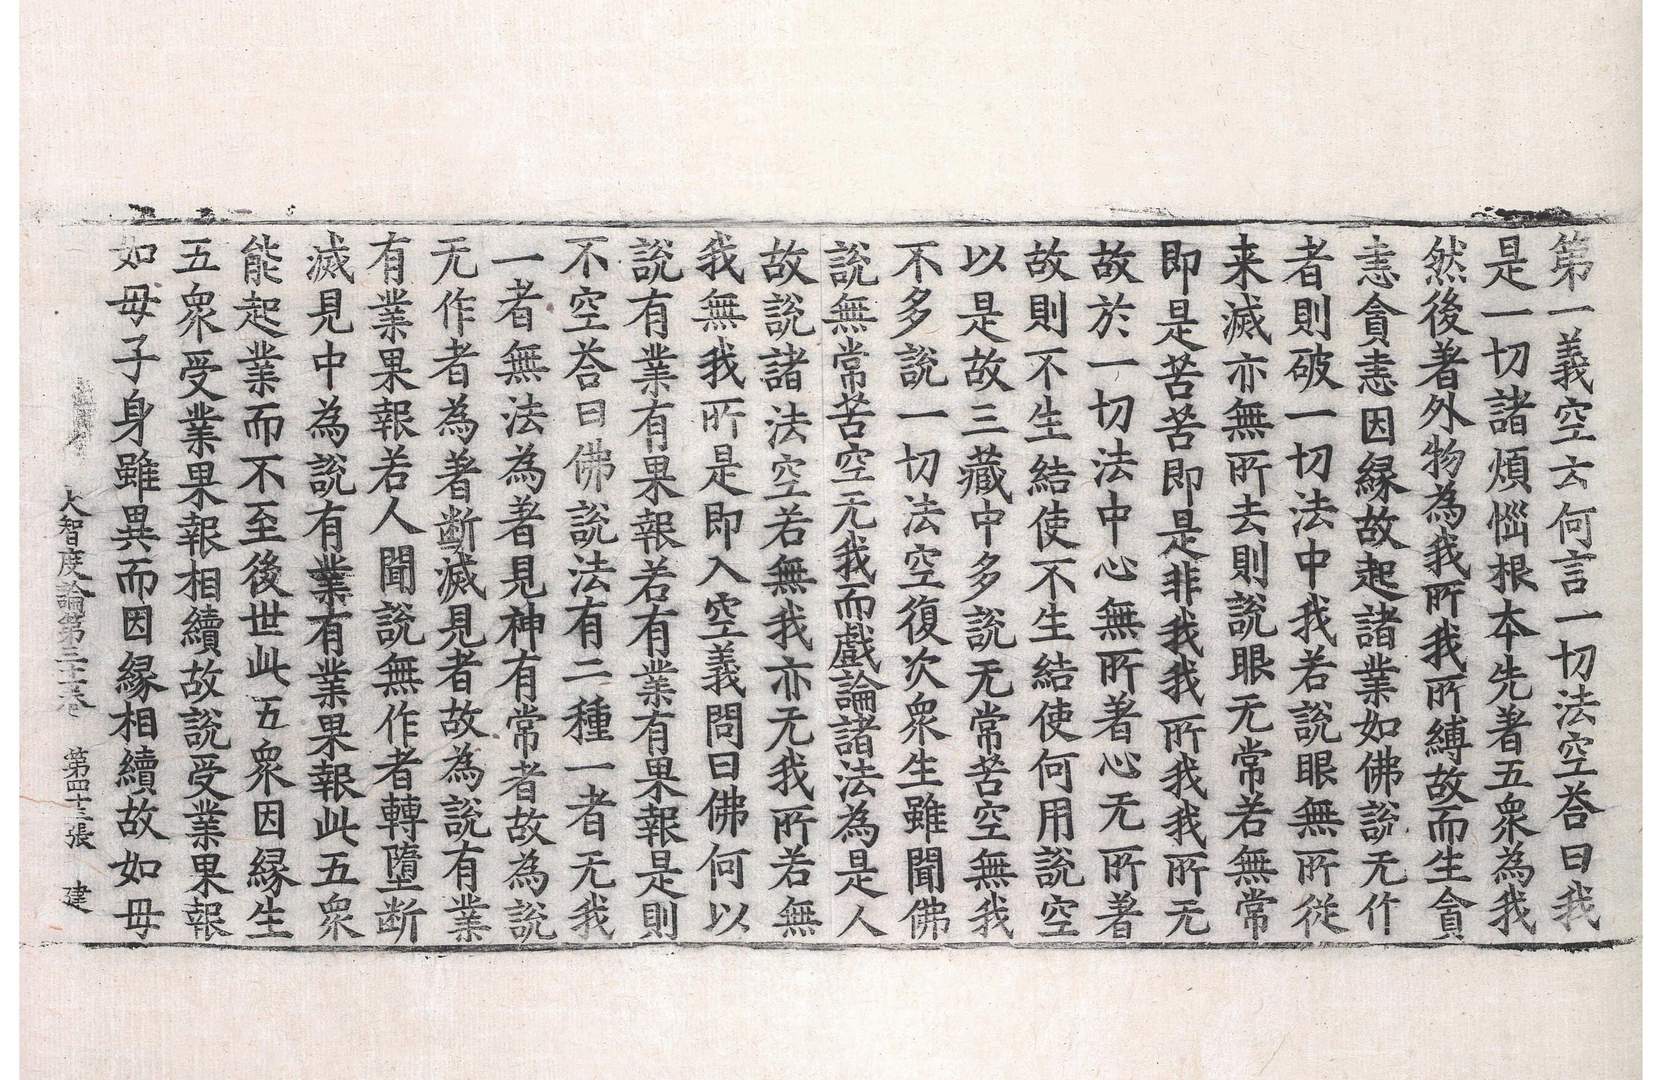 第一義空云何言一切法空荅曰我
是一切諸煩惱根本先著五衆為我
然後著外物為我所我所縛故而生貪
恚貪恚因縁故起諸業如佛說无作
者則破一切法中我若說眼無所從
来滅亦無所去則說眼无常若無常
即是苦苦即是非我我所我我所无
故於一切法中心無所著心无所著
故則不生結使不生結使何用說空
以是故三藏中多說无常苦空無我
不多說一切法空復次衆生雖聞佛
說無常苦空无我而戲論諸法為是人
故說諸法空若無我亦无我所若無
我無我所是即入空義問曰佛何以
說有業有果報若有業有果報是則
不空荅曰佛說法有二種一者无我
一者無法為著見神有常者故為說
无作者為著斷滅見者故為說有業
有業果報若人聞說無作者轉墮斷
滅見中為說有業有業果報此五衆
能起業而不至後世此五衆因縁生
五衆受業果報相續故說受業果報
如母子身雖異而因縁相續故如母
大智度論第三十卷 第四十三張 建